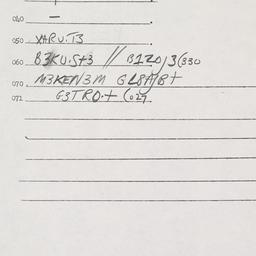 040 —
050 XARU.T3
060 B3KU.S+3 // B120/3(330
070 M3KEN3M GL8A/B+
072 G3TRO.+ (029